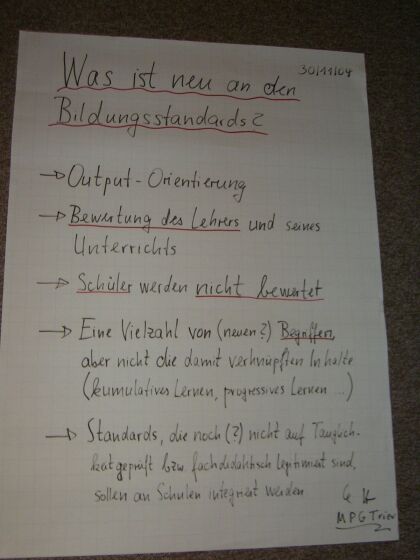 30/11/04
Was ist neu an den
Bildungsstandards?
→ Output-Orientierung
→ Bewertung des Lehrers und seines
Unterrichts
→ Schüler werden nicht bewertet
→ Eine Vielzahl von (neuen?) Begriffen,
aber nicht die damit verknüpften Inhalte
(kumulatives Lernen, progressives Lernen ...)
→ Standards, die noch (?) nicht auf Tauglich-
keit geprüft bzw fachdidaktisch legitimiert sind,
sollen an Schulen integriert werden
MPG Trier